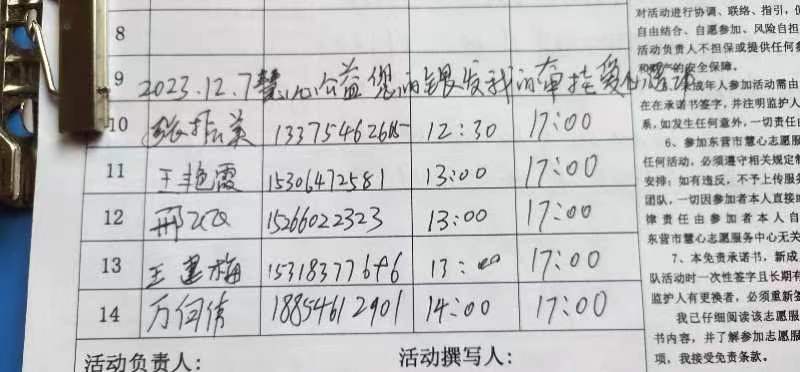 8
9 2023.12.7慧心公益您的银发我的牵挂爱心活动
10 张振英 13375462615 12:30 17:00
11 王艳霞 15306472581 13:00 17:00
12 邢 15266022323 13:00 17:00
13 王建梅 15318377696 13:00 17:00
14 万何倩 18854612901 14:00 17:00
活动负责人: 活动撰写人:
对活动进行协调、联络、指引，
自由结合、自愿参加、风险自担
活动负责人不担保或提供任何
和财产的安全保障。
成年人参加活动需由
在在承诺书签字，并注明监护人
系，如发生任何意外，一切责任由
6、参加东营市慧心志愿服
任何活动，必须遵守相关规定
安排；如有违反，不予上传服务
团队，一切因参加者本人直接
律责任由参加者本人自
东营市慧心志愿服务中心无关
7、本免责承诺书，新成
队活动时一次性签字且长期有
监护人有更换者，必须重新签
我已仔细阅读该志愿服
书内容，并了解参加志愿服
项，我接受免责条款。